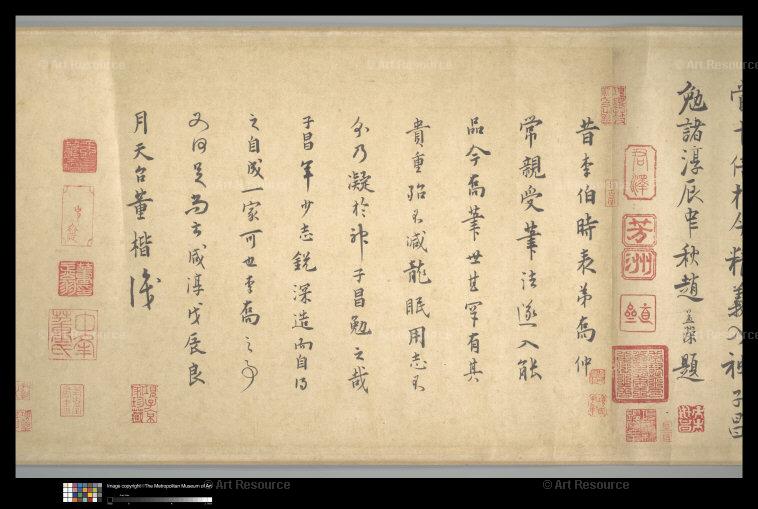 精義入神子昌
勉諸淳辰中秋趙孟濚題
君澤
芳洲
昔李伯時表弟喬仲
常親受筆法遂入能
品今喬筆世甚罕有其
貴重殆不减龍眠用志不
分乃凝於神子昌勉之哉
子昌年少志銳深造而自得
之自成一家可也李喬之事
又何足尚云咸淳戊辰良
月天台董楷識
Image copyright © The Metropolitan Museum of Art
© Art Resource
© Art Resource
© Art Resource
© Art Resource